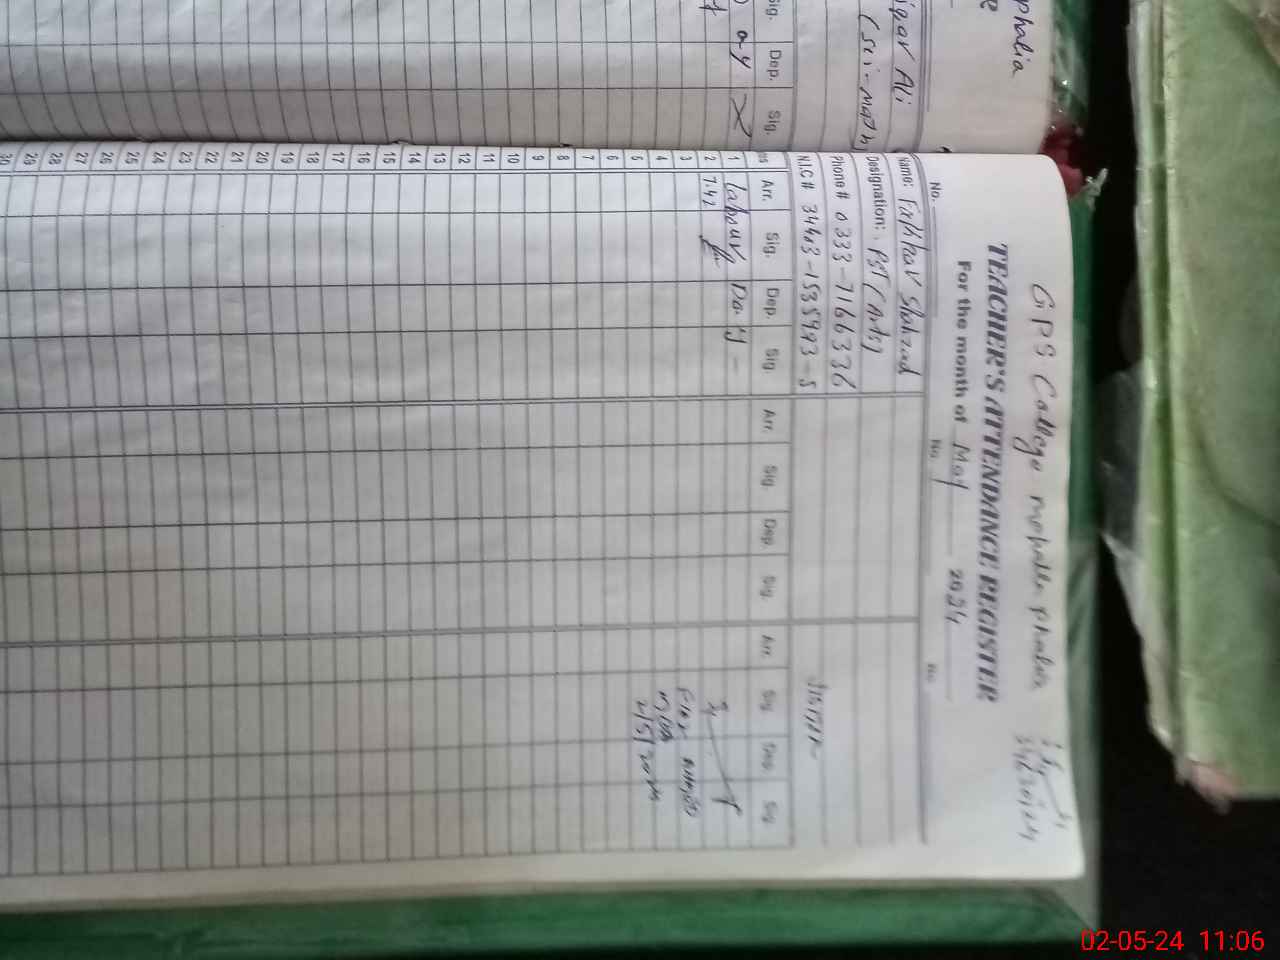 GPS College mohalla phalia
TEACHER'S ATTENDANCE REGISTER
For the month of May 2024
No. No. No.
Name: Iftikhar Shahzad
Designation: PST (Arts)
Phone# 0333-7166336
N.I.C# 34403-1535993-5
Arr. Sig. Dep. Sig. Arr. Sig. Dep. Sig. Arr. Sig. Dep. Sig.
1 Labour Day -
2 7.42
3
4
5 2/5/2024
6
7
8
9
10
11
12
13
14
15
16
17
18
19
20
21
22
23
24
25
26
27
28
29
30
phalia
Ali
(Sci-math)
Sig. Dep. Sig.
ay
02-05-24 11:06